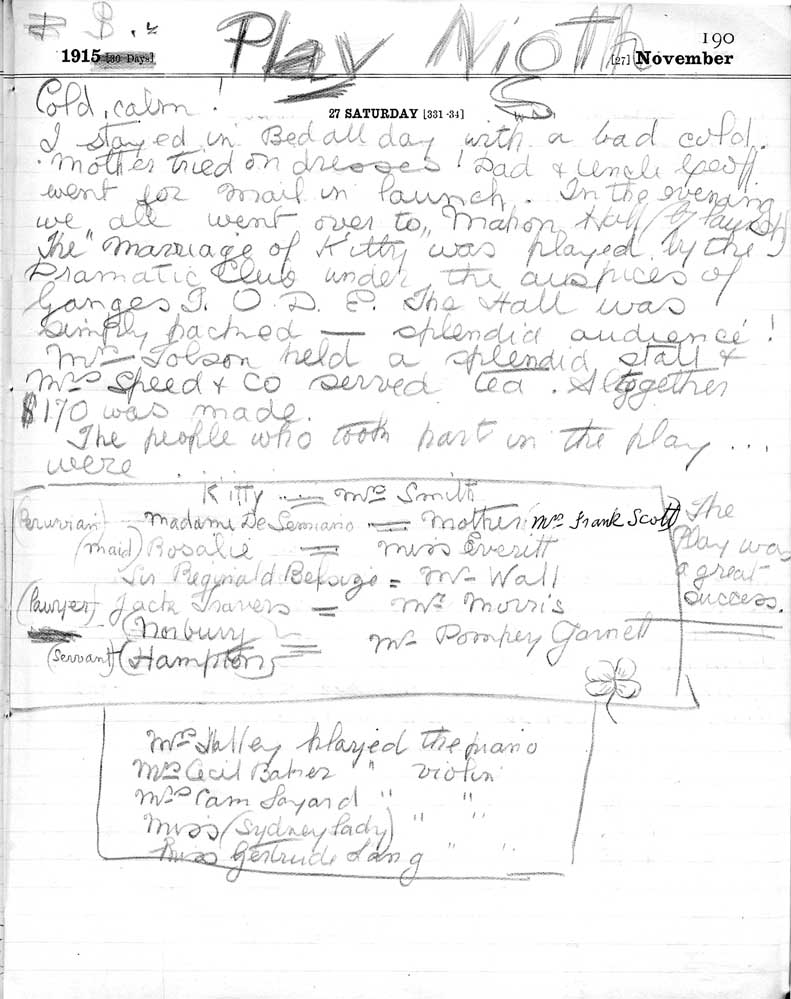 Play Night
190
1915 [30 Days]
[27] November
Cold, calm!
27 SATURDAY [331-34]
I stayed in Bed all day with a bad cold.
Mother tried on dresses! Dad & Uncle Geoff
went for mail in launch. In the evening
we all went over to Mahon Hall
The "Marriage of Kitty" was played by the
Dramatic Club under the auspices of
Ganges I. O. D. E. The Hall was
simply packed — splendid audience!
Mrs Tolson held a splendid stall &
Mrs Speed & Co served tea. Altogether
$170 was made.
The people who took part in the play ...
were
Kitty = Mrs Smith
(Peruvian) Madame De Semiano = Mother Mrs Frank Scott
(maid) Rosalie = Miss Everitt
Sir Reginald Belsize = Mr Wall
(Lawyer) Jack Travers = Mr Morris
(Norbury
(servant) (Hampton) = Mr Pompey Garnett
The
Play was
a great
success.
Mrs Halley played the piano
Mrs Cecil Baker " violin
Mrs Cam Layard " "
Miss (Sydney lady) " "
Miss Gertrude Lang " "